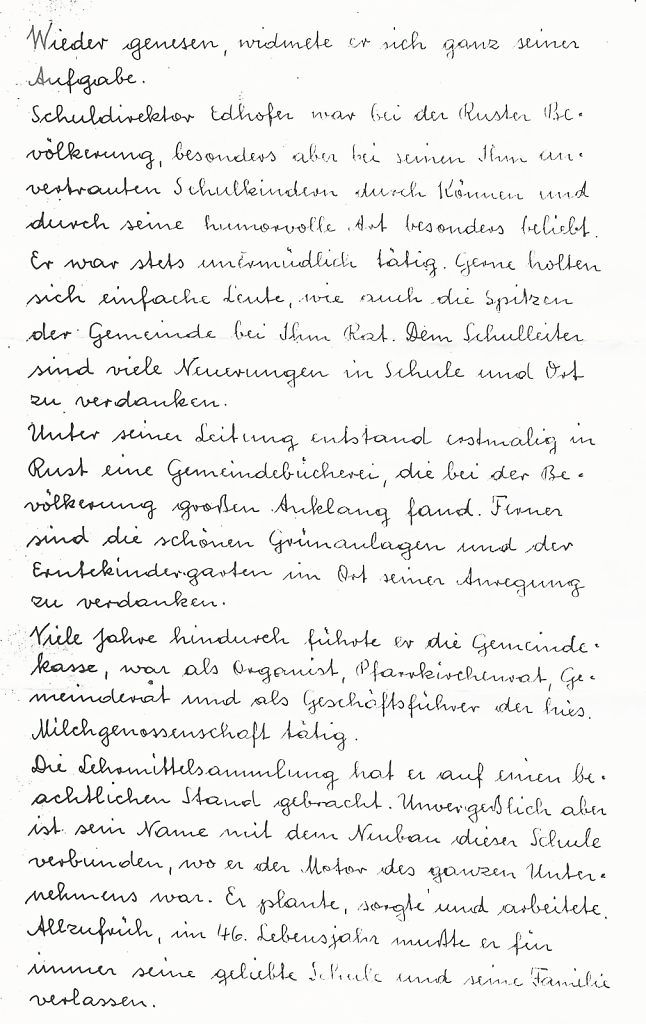 Wieder genesen, widmete er sich ganz seiner
Aufgabe.
Schuldirektor Edhofer war bei der Ruster Be-
völkerung, besonders aber bei seinen Ihm an-
vertrauten Schulkindern durch Können und
durch seine humorvolle Art besonders beliebt.
Er war stets unermüdlich tätig. Gerne holten
sich einfache Leute, wie auch die Spitzen
der Gemeinde bei Ihm Rat. Dem Schulleiter
sind viele Neuerungen in Schule und Ort
zu verdanken.
Unter seiner Leitung entstand erstmalig in
Rust eine Gemeindebücherei, die bei der Be-
völkerung großen Anklang fand. Ferner
sind die schönen Grünanlagen und der
Erntekindergarten im Ort seiner Anregung
zu verdanken.
Viele Jahre hindurch führte er die Gemeinde-
kasse, war als Organist, Pfarrkirchenrat, Ge-
meinderat und als Geschäftsführer der hies.
Milchgenossenschaft tätig.
Die Lehrmittelsammlung hat er auf einen be-
achtlichen Stand gebracht. Unvergeßlich aber
ist sein Name mit dem Neubau dieser Schule
verbunden, wo er der Motor des ganzen Unter-
nehmens war. Er plante, sorgte und arbeitete.
Allzufrüh, im 46. Lebensjahr mußte er für
immer seine geliebte Schule und seine Familie
verlassen.